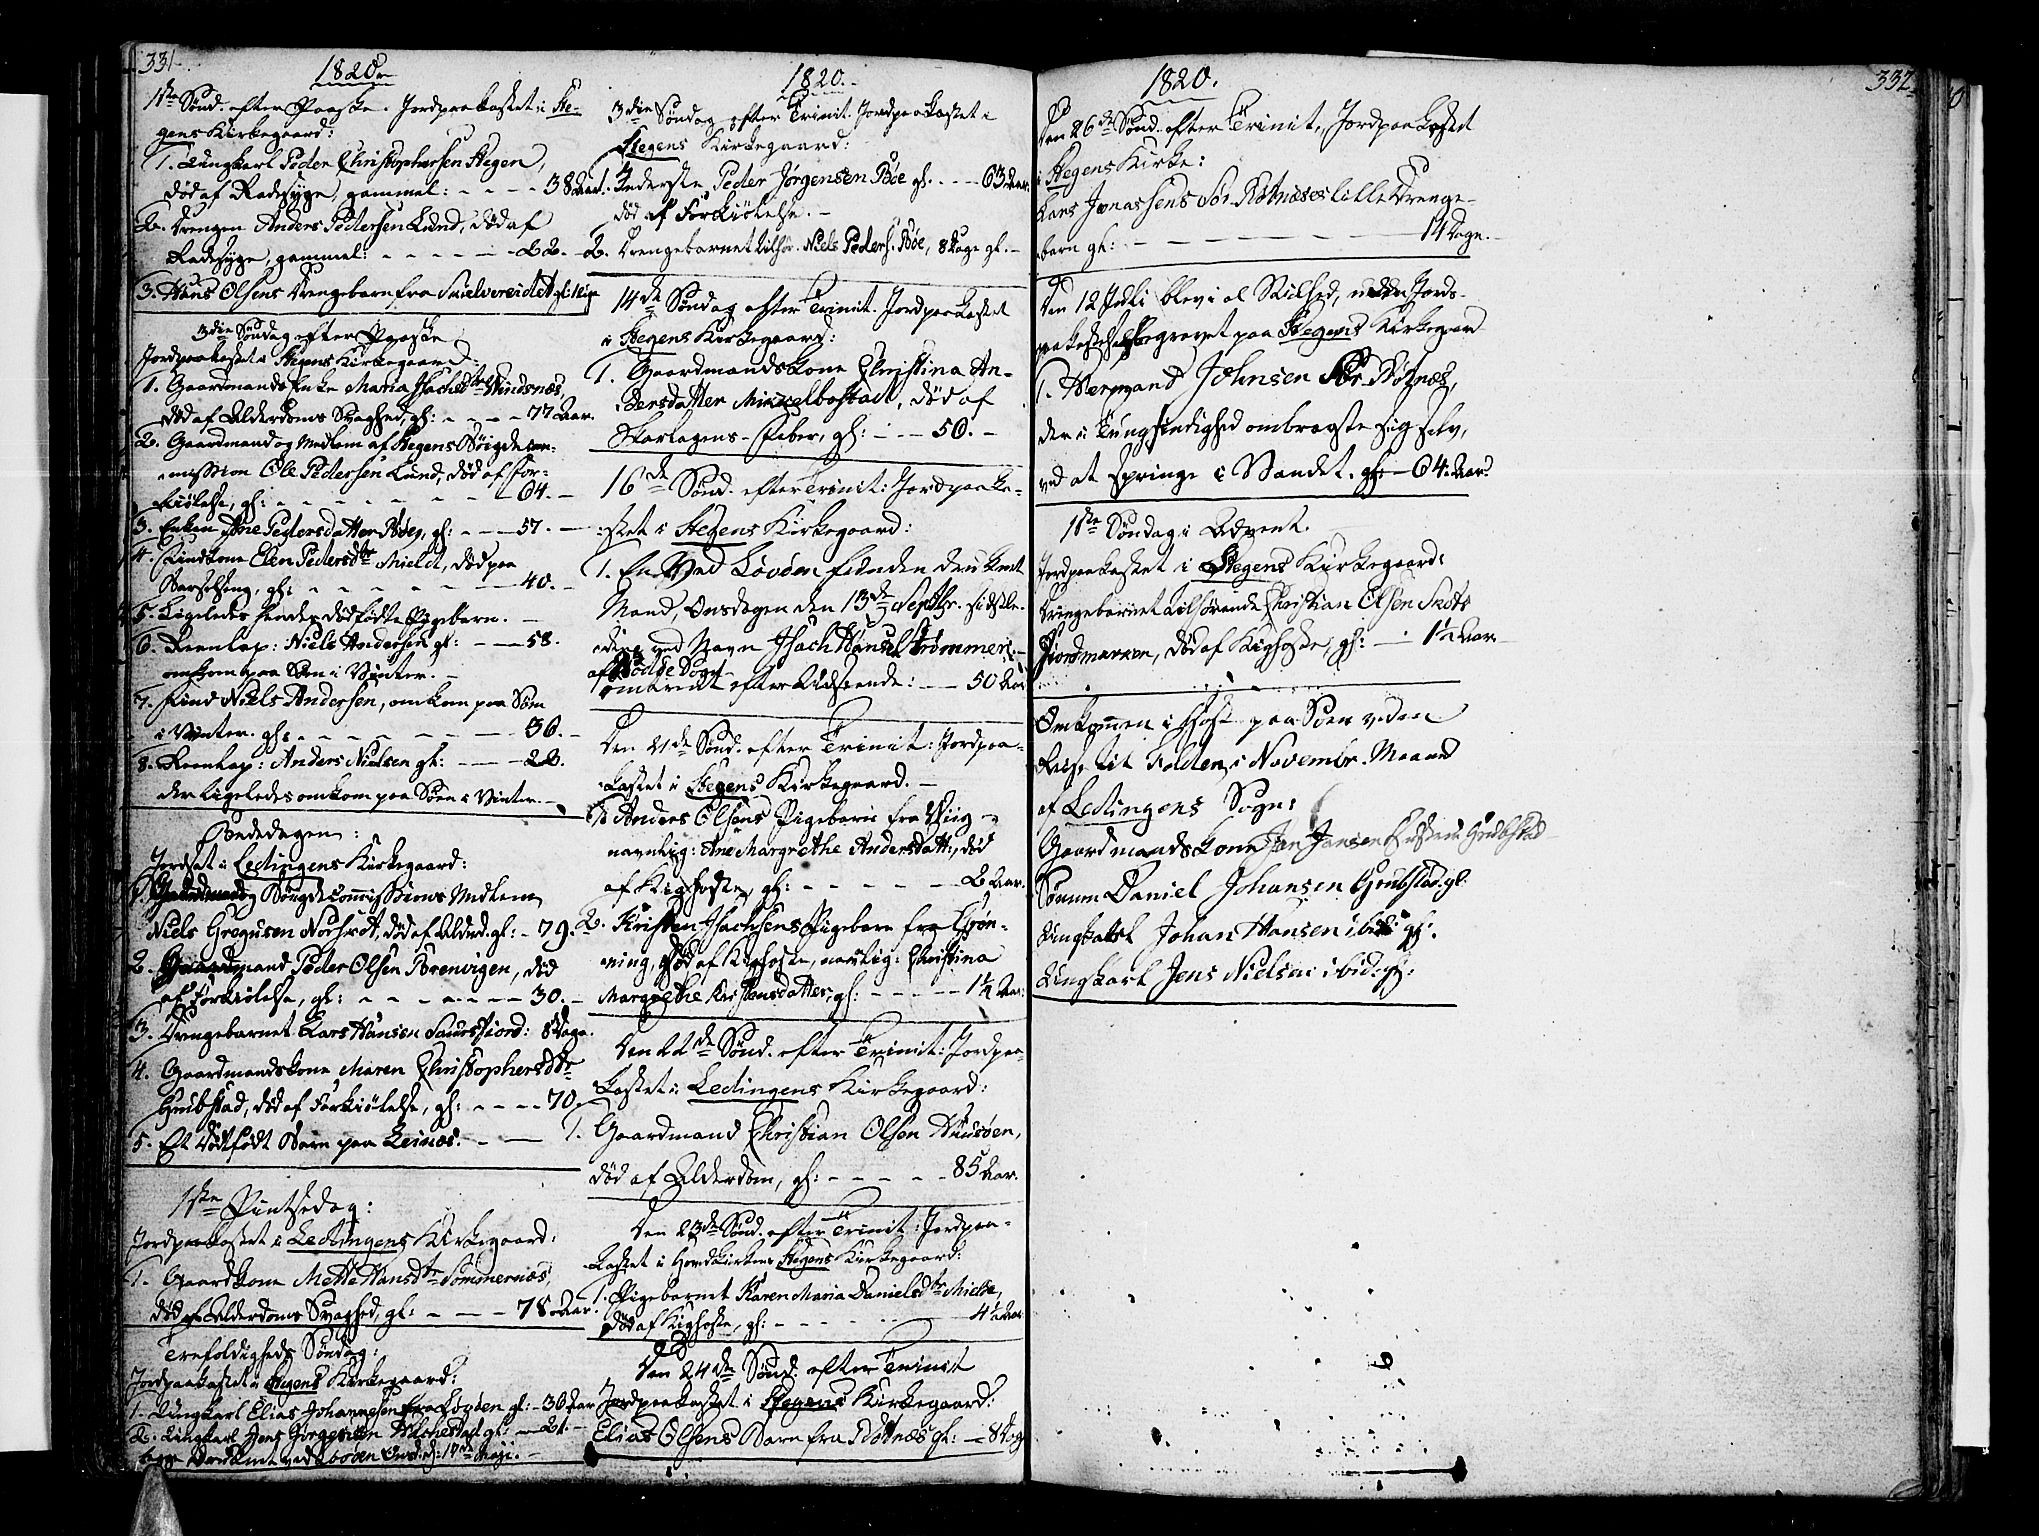 331
1820
1ste Sönd. efter Paaske. Jordpaakastet i Ste-
gens Kirkegaard:
1. Ungkarl Peder Christophersen Stegen,
död af Radesyge, gammel: - - - 38 Aar.
2. Drengen Anders Pedersen Lund, död af
Radesyge, gammel: - - - - - 22. -
3. Hans Olsens Drengebarn fra
3die Söndag efter Paaske
Jordpaakastet i Stegens Kirkegaard:
1. Gaardmands Enke Maria Isachsdtr Vindsnæs,
död af Alderdoms Svaghed, gl: - - - 77 Aar.
2. Gaardmand og Medlem af Stegens Com-
mission Ole Pedersen Lund, död af For-
kiölelse, gl: - - - - - 64. -
3. Enken Ane Pedersdatter Böe, gl: - - 57. -
4. Elen Pedersdtr Mield, död paa
Barselseng, gl: - - - - - 40. -
5. Ligeledes hendes dödfödte Pigebarn. -
6. Reenlap: Niels Andersen gl: - - 58.
omkom paa Söen i Vinter. -
7. Find Niels Andersen, omkom paa Söen
i Vinter. gl: - - - - - 36. -
8. Reenlap: Anders Nielsen gl: - - 28.
der ligeledes omkom paa Söen i Vinter. -
Bededagen:
Jordet i Ledingens Kirkegaard:
1. Commissions Medlem
Niels Gregusen död af Alderd. gl: - 79. -
2. Gaardmand Peder Olsen Korenvigen, död
af Forkiölelse, gl: - - - - - 30. -
3. Drengebarnet Lars Hansen 8 Dage.
4. Gaardmandskone Maren Christophersdtr
Grubstad, död af Forkiölelse, gl: - - - 70.
5. Et Dödfödt Barn paa Leines. - -
1ste Pintsedag:
Jordpaakastet i Ledingens Kirkegaard:
1. Gaardkone Mette Hansdtr Sommernæs,
död af Alderdoms Svaghed, gl: - - - 78 Aar.
Trefoldigheds Söndag:
Jordpaakastet i Stegens Kirkegaard:
1. Ungkarl Elias Johannesen fra Lovöen gl: - 36 Aar
2. Ungkarl Jens Jörgensen gl: - 21. -
begge Druknet ved Lovöen 17de Maji. -
1820.
3die Söndag efter Trinit. Jordpaakastet i
Stegens Kirkegaard:
1. Inderste Peder Jörgensen Böe gl. - - 63 Aar.
död af Forkiölelse. -
2. Drengebarnet Niels Peders. Böe, 8 Dage gl. -
14de Söndag efter Trinit. Jordpaakastet
i Stegens Kirkegaard:
1. Gaardmandskone Christina An-
dersdatter Mikkelbostad, död af
Skarlagens-Feber, gl: - - 50. -
16de Sönd. efter Trinit: Jordpaaka-
stet i Stegens Kirkegaard:
1. En ved Lovöen funden druknet
Mand, Onsdagen den 13de Septbr. sidstle-
den, ved Navn Isach Hansen
af Sogn
omtrent efter Udseende: - - 50 Aar
Den 21de Sönd. efter Trinit: Jordpaa-
kastet i Stegens Kirkegaard. -
1. Anders Olsens Pigebarn fra Viig -
navnlig: Ane Margrethe Andersdatt:, död
af Kighoste, gl: - - - - - 2 Aar.
2. Kristen Isachsens Pigebarn fra Grön-
ning, död af Kighoste, navnlig: Christina
Margrethe Kristensdatter, gl: - - - 1¼ Aar:
Den 22de Sönd. efter Trinit: Jordpaa-
kastet i Ledingens Kirkegaard:
1. Gaardmand Christian Olsen Huusöen,
död af Alderdom, gl: - - - - - 85 Aar.
Den 23de Sönd. efter Trinit: Jordpaa-
kastet i Hovedkirkens Stegens Kirkegaard:
1. Pigebarnet Karen Maria Danielsdtr Mielde,
död af Kighoste, gl: - - - - - 4½ Aar
Den 24de Sönd. efter Trinit
Jordpaakastet i Stegens Kirkegaard:
Elias Olsens Barn fra Rötnæs gl: - 8 Dag
332
1820.
Den 26de Sönd. efter Trinit., Jordpaakastet
i Stegens Kirke:
Lars Jonassens Sör-Rötnæses lille Drenge-
barn gl: - - - - - 14 Dage. -
Den 12 Juli blev i al Stilhed, uden Jords-
paakastelse begravet paa Stegens Kirkegaard
1. Hermand Johnsen Sör-Rötnæs,
der i Tungsindighed ombragte sig selv,
ved at springe i Vandet. gl: - 64 Aar.
1ste Söndag i Advent.
Jordpaakastet i Stegens Kirkegaard:
Drengebarnet tilhörende Christian Olsen Skots
Fiordmarken, död af Kighoste, gl: - 1½ Aar
Omkommen i Höst paa Söen veden
Reise til Folden, i Novembr. Maaned
af Ledingens Sogn:
Gaardmandskone Jan Jansen Grubstad
Sönnen Daniel Johansen Grubstad. gl.
Ungkarl Johan Hansen ibid: gl.
Ungkarl Jens Nielsen ibid: gl: